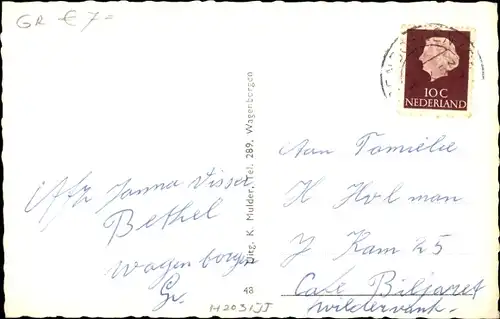 GR € 7=
10 C
NEDERLAND
Uitg. K. Mulder, Tel. 289, Wagenborgen
48
Afz Janna Visser
Bethel
Wagenborgen
Gr.
Aan Familie
H Holman
J Kam 25
Cafe Biljaret
Wildervank.
H2031JJ